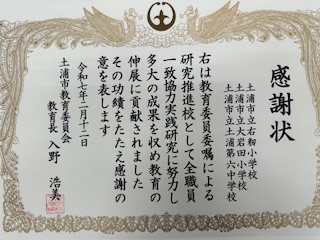 感謝状
土浦市立右籾小学校
土浦市立大岩田小学校
土浦市立土浦第六中学校
右は教育委員委嘱による
研究推進校として全職員
一致協力実践研究に努力し
多大の成果を収め教育の
伸展に貢献されました
その功績をたたえ感謝の
意を表します
令和七年二月十二日
土浦市教育委員会
教育長 入野 浩美